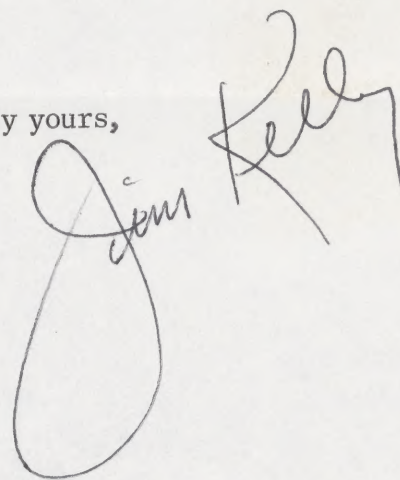 y yours,
Jim Kelly